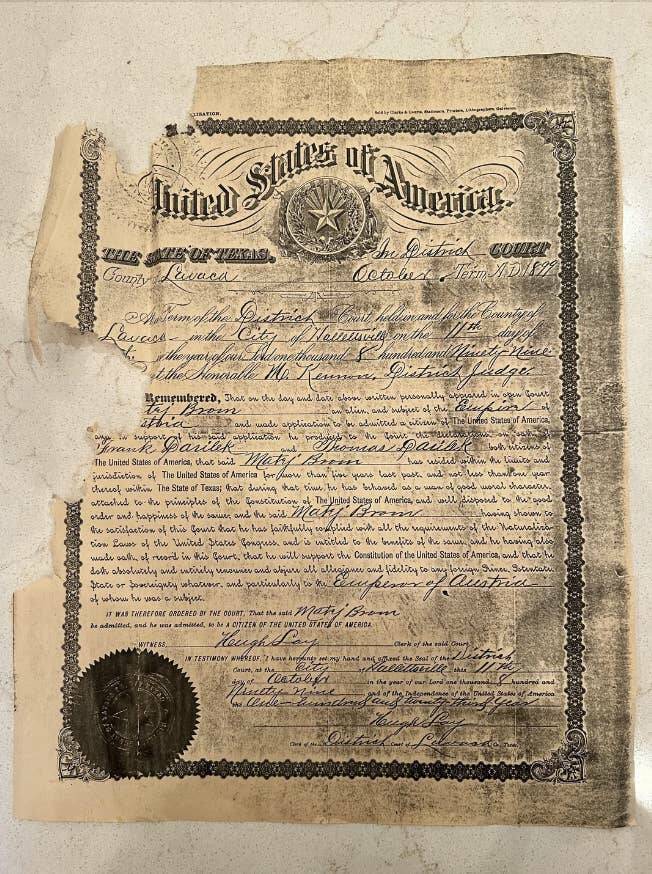 LIZATION.
Sold by Clarke & Courts, Stationers, Printers, Lithographers, Galveston.
United States of America.
THE STATE OF TEXAS,
In District COURT
County Lavaca
October Term, A.D. 1899
At a Term of the District Court, held in and for the County of
Lavaca in the City of Hallettsville on the 11th day of
in the year of our Lord one thousand 8 hundred and Ninety Nine
the Honorable M. Kennon, District Judge
Remembered, That on the day and date above written personally appeared in open Court
Brom an alien, and subject of the Empire of
stria and made application to be admitted a citizen of The United States of America,
and in support of his said application he produced to the Court the declaration on oath of
Frank Darilek and Thomas Darilek both citizens of
The United States of America, that said Matj Brom has resided within the limits and
jurisdiction of The United States of America for more than five years last past, and not less than one year
thereof within The State of Texas; that during that time, he has behaved as a man of good moral character,
attached to the principles of the Constitution of The United States of America, and well disposed to the good
order and happiness of the same; and the said Matj Brom having shown to
the satisfaction of this Court that he has faithfully complied with all the requirements of the Naturaliza-
tion Laws of the United States Congress, and is entitled to the benefits of the same, and he having also
made oath, of record in this Court, that he will support the Constitution of the United States of America, and that he
doth absolutely and entirely renounce and abjure all allegiance and fidelity to any foreign Prince, Potentate,
State or Sovereignty whatever, and particularly to the Emperor of Austria
of whom he was a subject.
IT WAS THEREFORE ORDERED BY THE COURT, That the said Matj Brom
be admitted, and he was admitted, to be a CITIZEN OF THE UNITED STATES OF AMERICA.
WITNESS, Hugh Lay Clerk of the said Court.
IN TESTIMONY WHEREOF, I have hereunto set my hand and affixed the Seal of the District
Court, at the City of Hallettsville this 11th
day of October in the year of our Lord one thousand 8 hundred and
Ninety nine and of the Independence of the United States of America
the One hundred and twenty third Year
Hugh Lay
Clerk of the District Court of Lavaca Co. Texas.